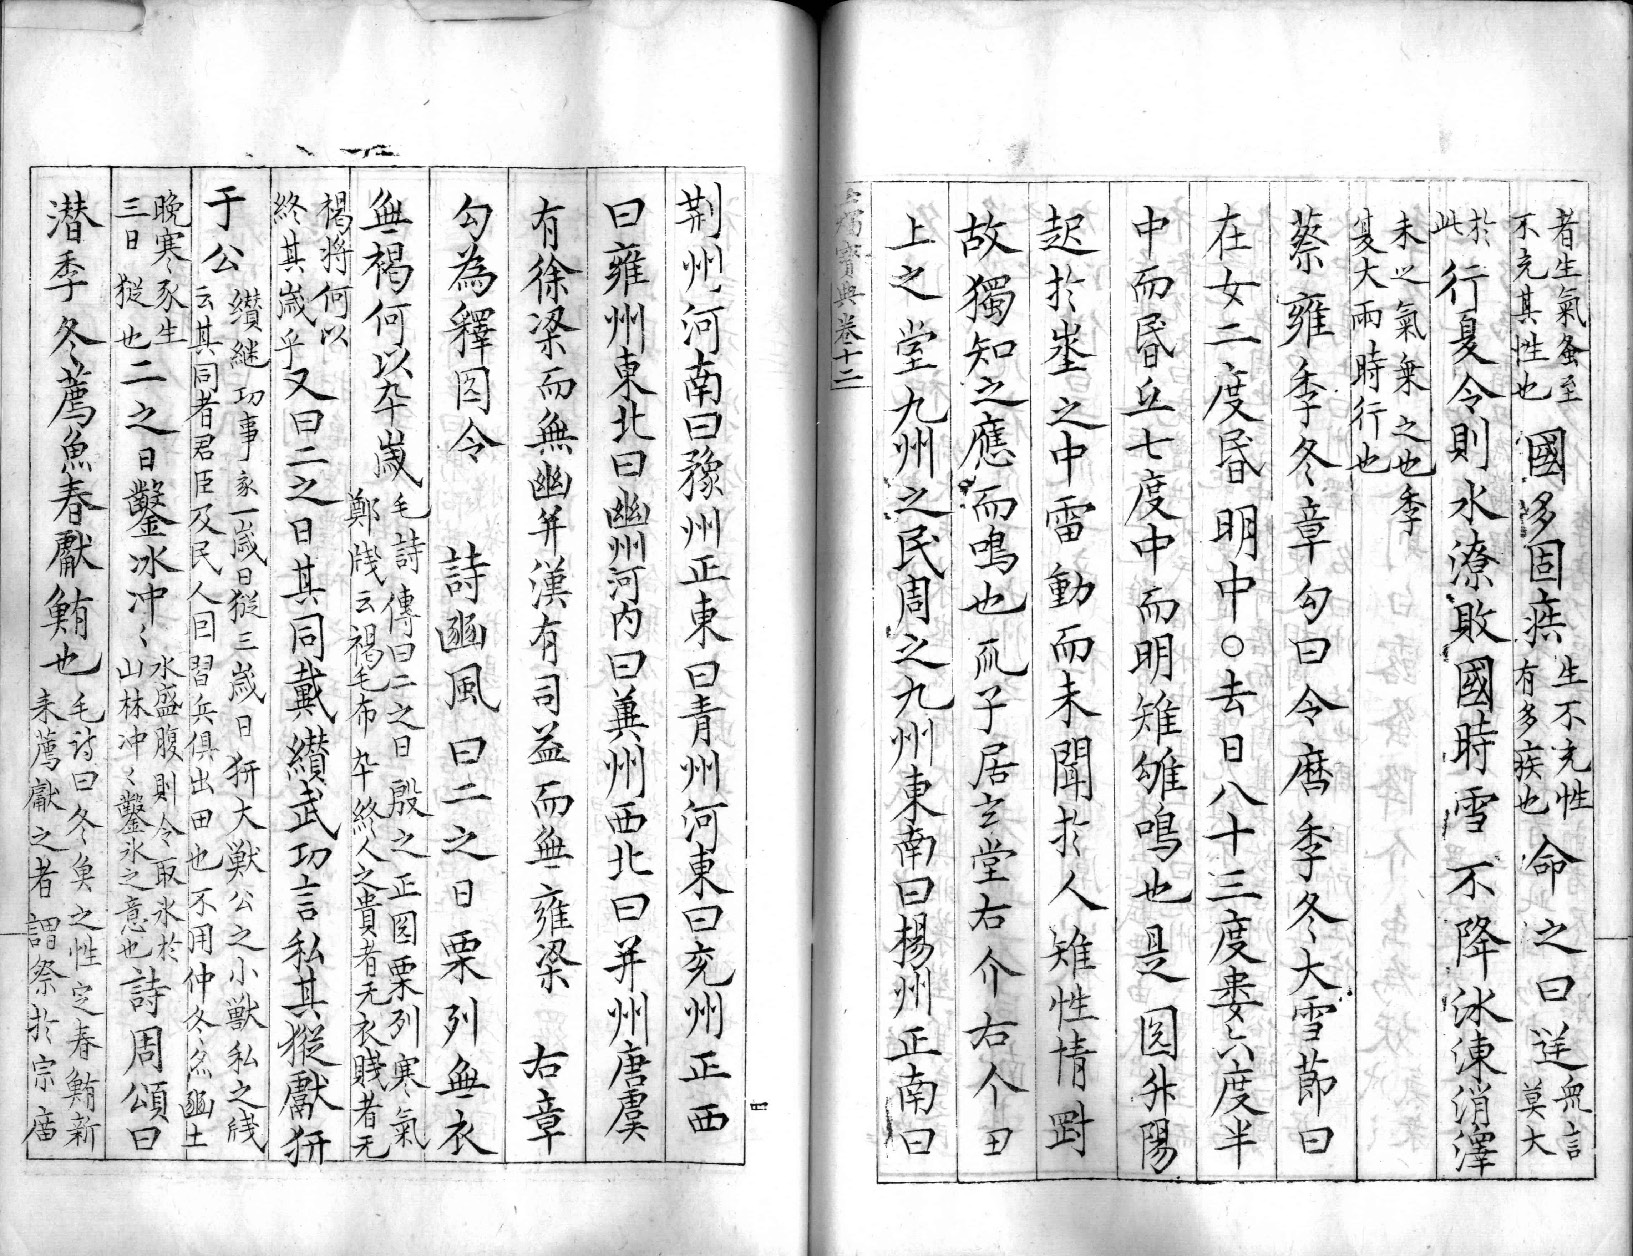 者生氣蚤至不充其性也國多固疾生不充性有多疾也命之曰逆衆言莫大
於此行夏令則水潦敗國時雪不降氷凍消澤
未之氣乗之也季夏大雨時行也
蔡雍季冬章句曰令曆季冬大雪節日
在女二度昏明中○去日八十三度婁六度半
中而昏丘七度中而明雉雊鳴也是囙升陽
起於㘸之中雷動而未聞於人雉性情剛
故獨知之應而鳴也天子居玄堂右介右个田
上之堂九州之民周之九州東南曰楊州正南曰
玉燭寶典卷十二
荆州河南曰豫州正東曰青州河東曰兖州正西
曰雍州東北曰幽州河内曰兾州西北曰并州唐虞
有徐梁而無幽并漢有司益而無雍梁　右章
句為釋囙令　詩豳風曰二之日栗列無衣
無褐何以卒歲毛詩傳曰二之日殷之正囙栗列寒氣鄭牋云褐毛布卒終人之貴者无衣賤者无
褐將何以終其歲乎又曰二之日其同載纘武功言私其豵獻豜
于公纘繼功事豕一歲曰豵三歲曰豜大獸公之小獸私之牋云其同者君臣及民人囙習兵俱出田也不用仲冬亦豳土
晚寒〻豕生三日豵也二之日鑿冰冲〻水盛腹則令取氷於山林冲〻鑿氷之意也詩周頌曰
潜季冬薦魚春獻鮪也毛詩曰冬魚之性定春鮪新来薦獻之者謂祭於宗庿